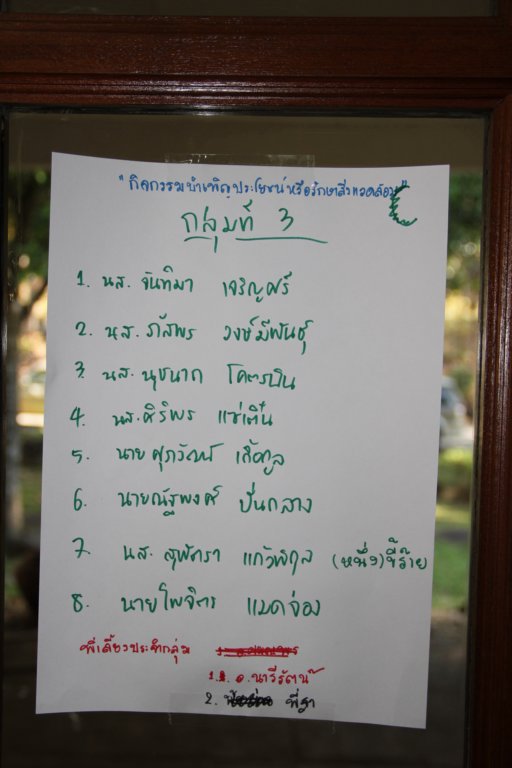 "กิจกรรมบำเพ็ญประโยชน์หรือรักษาสิ่งแวดล้อม"
กลุ่มที่ 3
1. นส. จันทิมา เจริญศรี
2. นส. ภัสพร วงษ์มีพันธุ์
3. นส. นุชนาถ โคตรบิน
4. นส. ศิริพร แซ่เติ๋น
5. นาย ศุภวัฒน์
6. นายณัฐพงศ์ ปั่นกลาง
7. นส. สุพัตรา แก้วพิกุล (หนึ่ง) ขี้ร๊าย
8. นายไพจิตร แมดจ่อง
พี่เลี้ยงประจำกลุ่ม
1. อ. นารีรัตน์
2. พี่ฐา